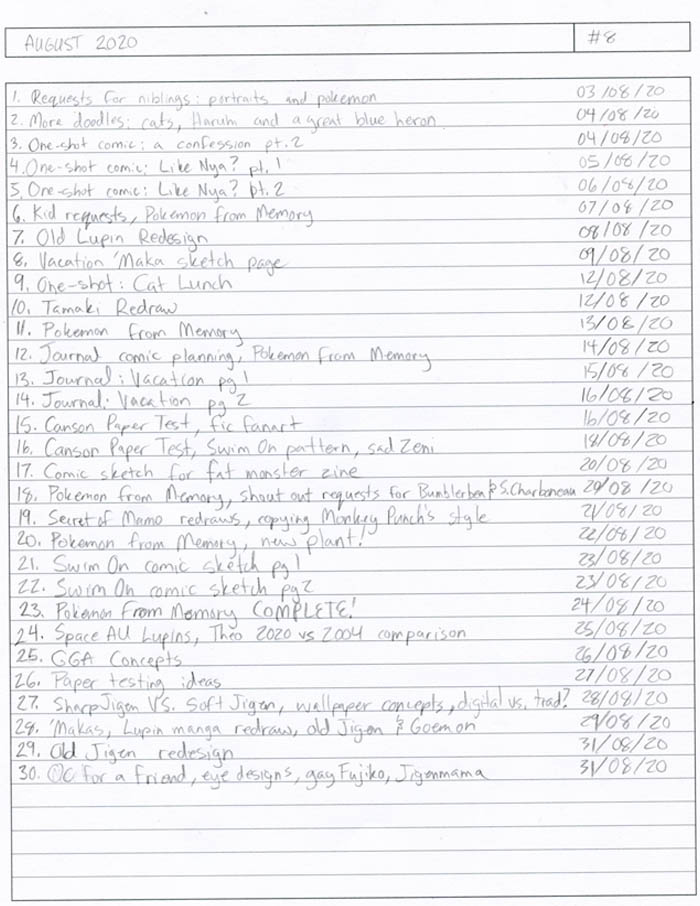 AUGUST 2020 #8
1. Requests for niblings: portraits and pokemon 03/08/20
2. More doodles: cats, Haruhi and a great blue heron 04/08/20
3. One-shot comic: a confession pt.2 04/08/20
4. One-shot comic: Like Nya? pt. 1 05/08/20
5. One-shot comic: Like Nya? pt. 2 06/08/20
6. Kid requests, Pokemon from Memory 07/08/20
7. Old Lupin Redesign 08/08/20
8. Vacation 'Maka sketch page 09/08/20
9. One-shot: Cat Lunch 12/08/20
10. Tamaki Redraw 12/08/20
11. Pokemon from Memory 13/08/20
12. Journal comic planning, Pokemon from Memory 14/08/20
13. Journal: Vacation pg 1 15/08/20
14. Journal: Vacation pg 2 16/08/20
15. Canson Paper Test, fic fanart 16/08/20
16. Canson Paper Test, Swim On pattern, sad Zeni 18/08/20
17. Comic sketch for fat monster zine 20/08/20
18. Pokemon from Memory, shout out requests for & S. Charboneau 20/08/20
19. Secret of Mamo redraws, copying Monkey Punch's style 21/08/20
20. Pokemon from Memory, new plant! 22/08/20
21. Swim On comic sketch pg 1 23/08/20
22. Swim On comic sketch pg 2 23/08/20
23. Pokemon From Memory COMPLETE! 24/08/20
24. Space AU Lupins, Theo 2020 vs 2004 comparison 25/08/20
25. GGA Concepts 26/08/20
26. Paper testing ideas 27/08/20
27. Sharp Jigen VS. Soft Jigen, wallpaper concepts, digital vs. trad? 28/08/20
28. 'Makas, Lupin manga redraw, old Jigen & Goemon 29/08/20
29. Old Jigen redesign 31/08/20
30. OC for a friend, eye designs, gay Fujiko, Jigenmama 31/08/20